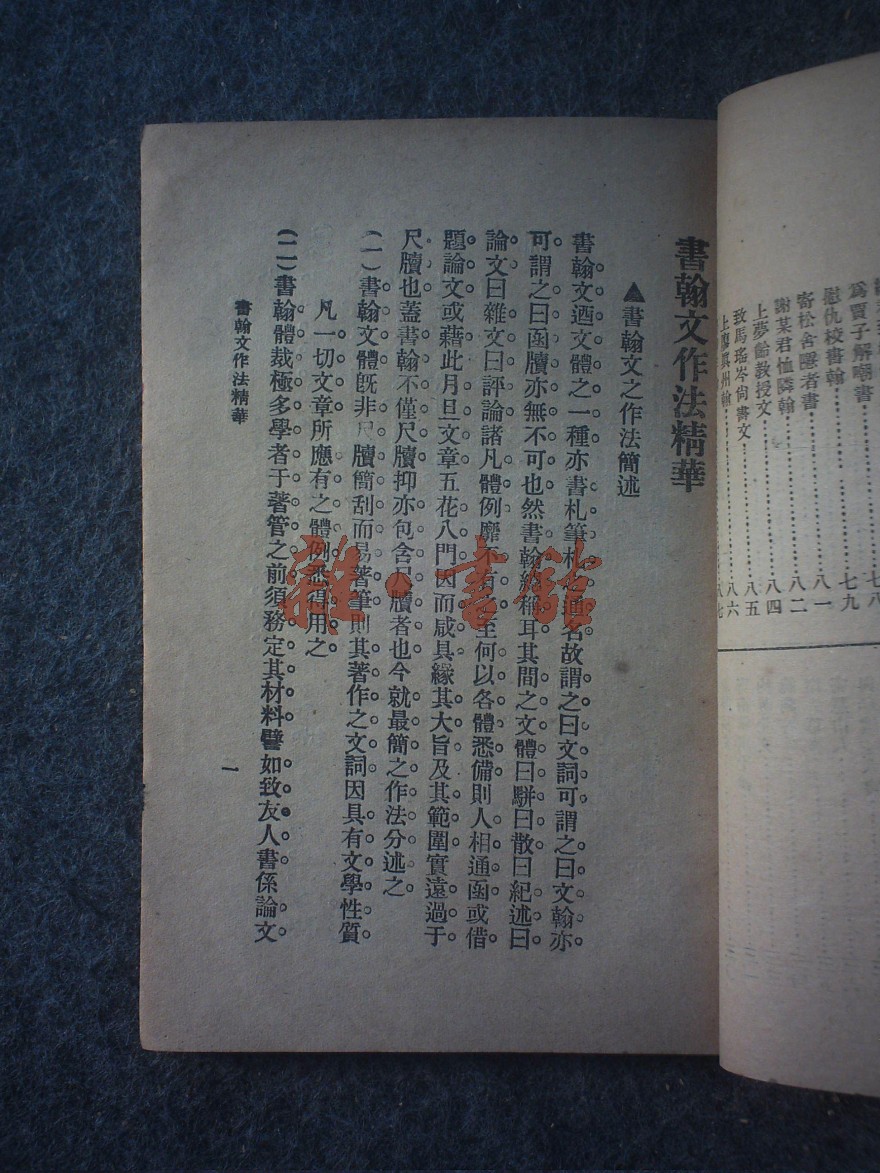 為賈子解嘲書⋯⋯七八
慰仇校書翰⋯⋯七九
寄松舍隱者書⋯⋯八一
謝某君恤隣翰⋯⋯八二
上夢齡教授文⋯⋯八四
致馬瑤岑尙書文⋯⋯八五
八六
書翰文作法精華
▲書翰文之作法簡述
書翰文迺文體之一種亦書札筆札之通名故謂之曰文詞可謂之曰文翰亦
可謂之曰函牘亦無不可也然書翰總稱耳其間之文體曰駢曰散曰紀述曰
論文曰雜文曰評論諸凡體例靡不有之至何以各體悉備則人相通函或借
題論文或藉此月旦文章五花八門因而咸具緣其大旨及其範圍實遠過于
尺牘也蓋書翰不僅尺牘抑亦包含尺牘者也今就最簡之作法分述之
(一)書翰文體旣非尺牘簡刮而易著筆則其著作之文詞因具有文學性質
凡一切文章所應有之體例悉得用之
(二)書翰體裁極多學者于著管之前須務定其材料譬如致友人書係論文
書翰文作法精華
一
雜·書館